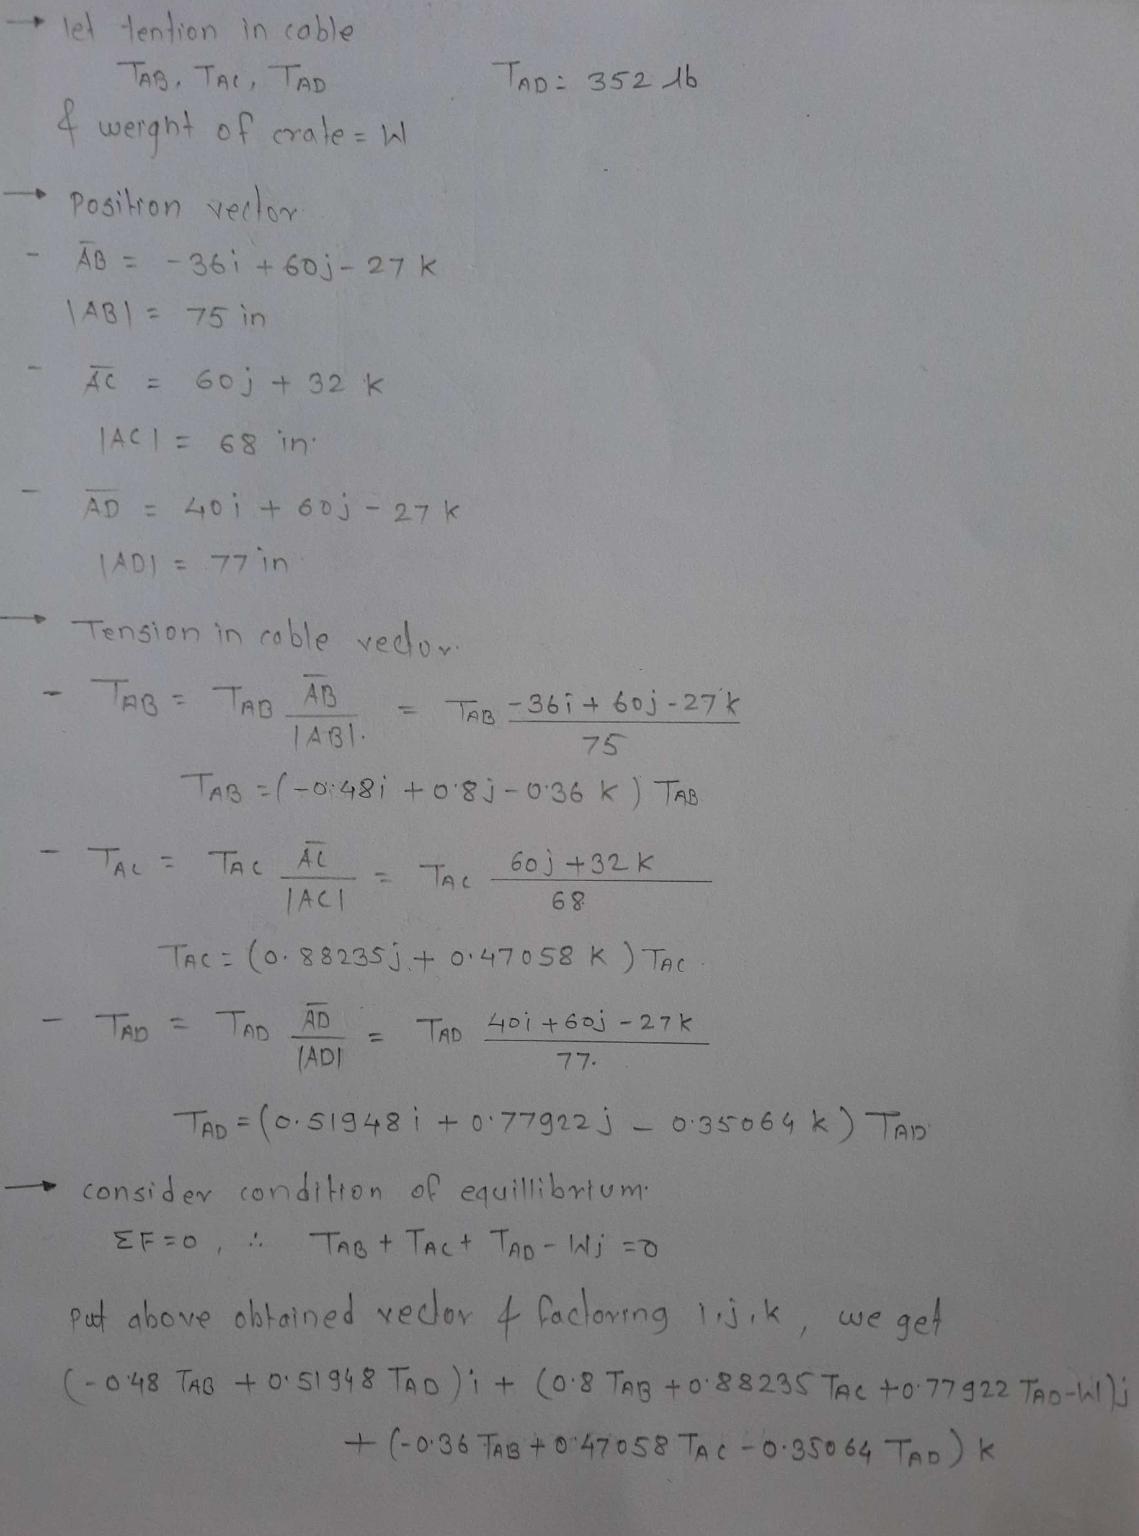 → let tention in cable
TAB, TAC, TAD TAD = 352 lb
& weight of crate = W
→ Position vector
- A̅B̅ = -36i + 60j - 27 k
|AB| = 75 in
- A̅C̅ = 60j + 32 k
|AC| = 68 in.
- A̅D̅ = 40i + 60j - 27 k
|AD| = 77 in
→ Tension in cable vector.
- TAB = TAB A̅B̅ / |AB|. = TAB -36i + 60j - 27k / 75
TAB = (-0.48i + 0.8j - 0.36 k) TAB
- TAC = TAC A̅C̅ / |AC| = TAC 60j + 32 k / 68
TAC = (0.88235j + 0.47058 k) TAC
- TAD = TAD A̅D̅ / |AD| = TAD 40i + 60j - 27k / 77.
TAD = (0.51948 i + 0.77922 j - 0.35064 k) TAD
→ consider condition of equillibrium.
ΣF = 0, ∴ TAB + TAC + TAD - Wj = 0
put above obtained vector & factoring i,j,k, we get
(-0.48 TAB + 0.51948 TAD)i + (0.8 TAB + 0.88235 TAC + 0.77922 TAD - W)j
+ (-0.36 TAB + 0.47058 TAC - 0.35064 TAD) k